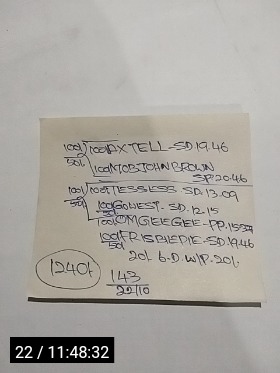 100/ 100/ AXTELL-SD.19.46
50/ 100/ MOBJOHNBROWN
SP.20.46
100/ 100/ JESSLESS SD.13.09
50/ 100/ GOWEST- SD.12.15
50/
100/ OMGEEGEE-PP.
100/ FRISBLEPIE-SD.19.46
50/
20/- 6.D.W/P.20/-
1240/-
143
22/10
22 / 11:48:32